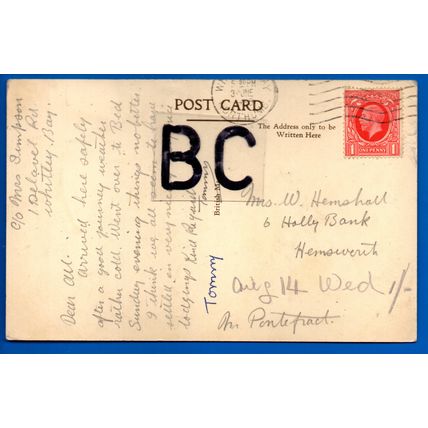 POST CARD
The Address only to be
Written Here
BC
3 JNE
1 1
ONE PENNY
British
c/o Mrs Simpson
1 Delavel Rd
Whitley Bay.
Dear All.
Arrived here safely
after a good journey weather
rather cold. Went over to Bed
Sunday evening things no better
I think we all seem to have
settled in very nice
lodgings Kind Regards
Tommy
Tommy
Mrs. W. Hemshall
6 Holly Bank
Hemsworth
Aug 14 Wed 1/-
Nr Pontefract.